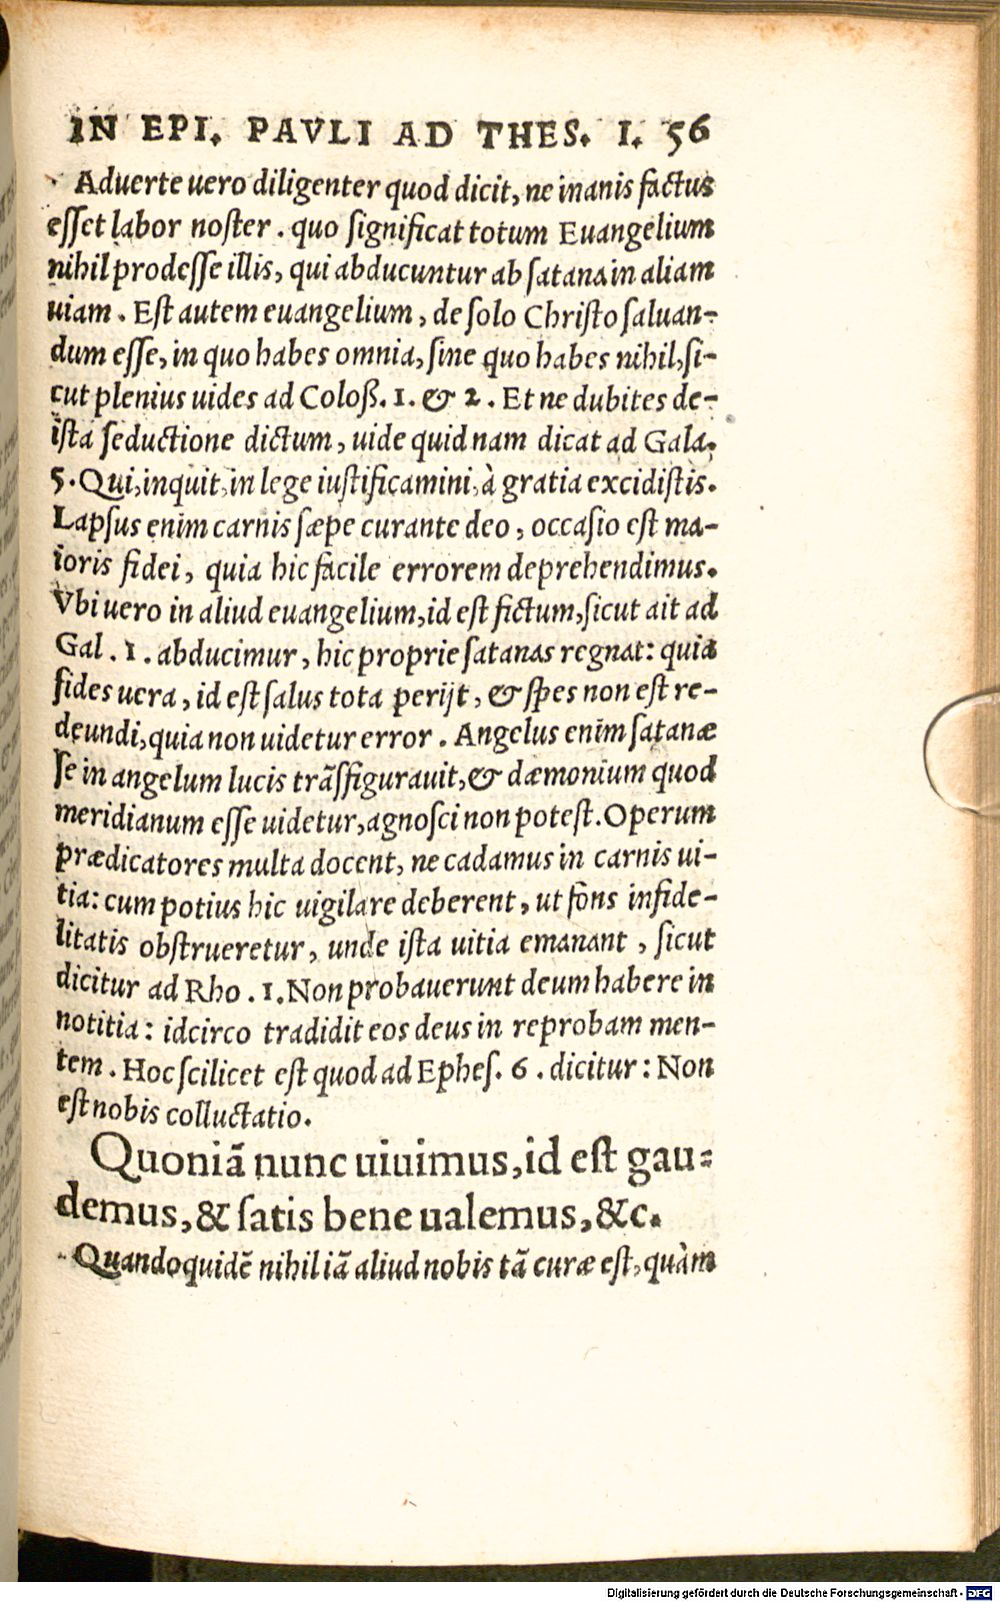 IN EPI. PAVLI AD THES. I. 56
Aduerte uero diligenter quod dicit, ne inanis factus
eſſet labor noſter. quo ſignificat totum Euangelium
nihil prodeſſe illis, qui abducuntur ab ſatana in aliam
uiam. Eſt autem euangelium, de ſolo Chriſto ſaluan-
dum eſſe, in quo habes omnia, ſine quo habes nihil, ſi-
cut plenius uides ad Coloß. 1. & 2. Et ne dubites de-
iſta ſeductione dictum, uide quid nam dicat ad Gala.
5. Qui, inquit, in lege iuſtificamini, à gratia excidiſtis.
Lapſus enim carnis ſæpe curante deo, occaſio eſt ma-
ioris fidei, quia hic facile errorem deprehendimus.
Vbi uero in aliud euangelium, id eſt fictum, ſicut ait ad
Gal. 1. abducimur, hic proprie ſatanas regnat: quia
fides uera, id eſt ſalus tota perijt, & ſpes non eſt re-
deundi, quia non uidetur error. Angelus enim ſatanæ
ſe in angelum lucis trãſfigurauit, & dæmonium quod
meridianum eſſe uidetur, agnoſci non poteſt. Operum
prædicatores multa docent, ne cadamus in carnis ui-
tia: cum potius hic uigilare deberent, ut fons infide-
litatis obſtrueretur, unde iſta uitia emanant, ſicut
dicitur ad Rho. 1. Non probauerunt deum habere in
notitia: idcirco tradidit eos deus in reprobam men-
tem. Hoc ſcilicet eſt quod ad Epheſ. 6. dicitur: Non
eſt nobis colluctatio.
Quoniã nunc uiuimus, id eſt gau-
demus, & ſatis bene ualemus, &c.
Quandoquidẽ nihil iã aliud nobis tã curæ eſt, quàm
Digitalisierung gefördert durch die Deutsche Forschungsgemeinschaft - DFG